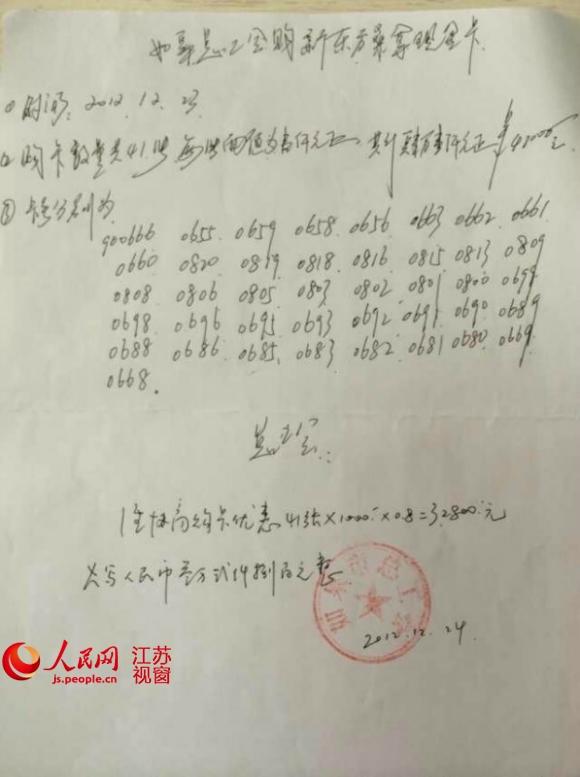 如皋总工会购新东方桑拿现金卡
① 时间: 2012.12.23
② 购卡数量共41张 每张面值为壹仟元正、共计肆万壹仟元正 ¥41000元
③ 卡号分别为
900666 0655. 0659 0658. 0656 0663 0662. 0661
0660 0820 0819 0818. 0816 0815 0813 0809
0808 0806 0805. 0803 0802 0801 0800 0699
0698. 0696 0695 0693 0692 0691 0690 0689
0688 0686 0685. 0683 0682. 0681 0680 0669
0668.
总工会:
优惠 41张×1000×0.8=32800元
大写人民币叁万贰仟捌佰元整
如皋市总工会
2012.12.24
人民网
js.people.cn
江苏
视窗